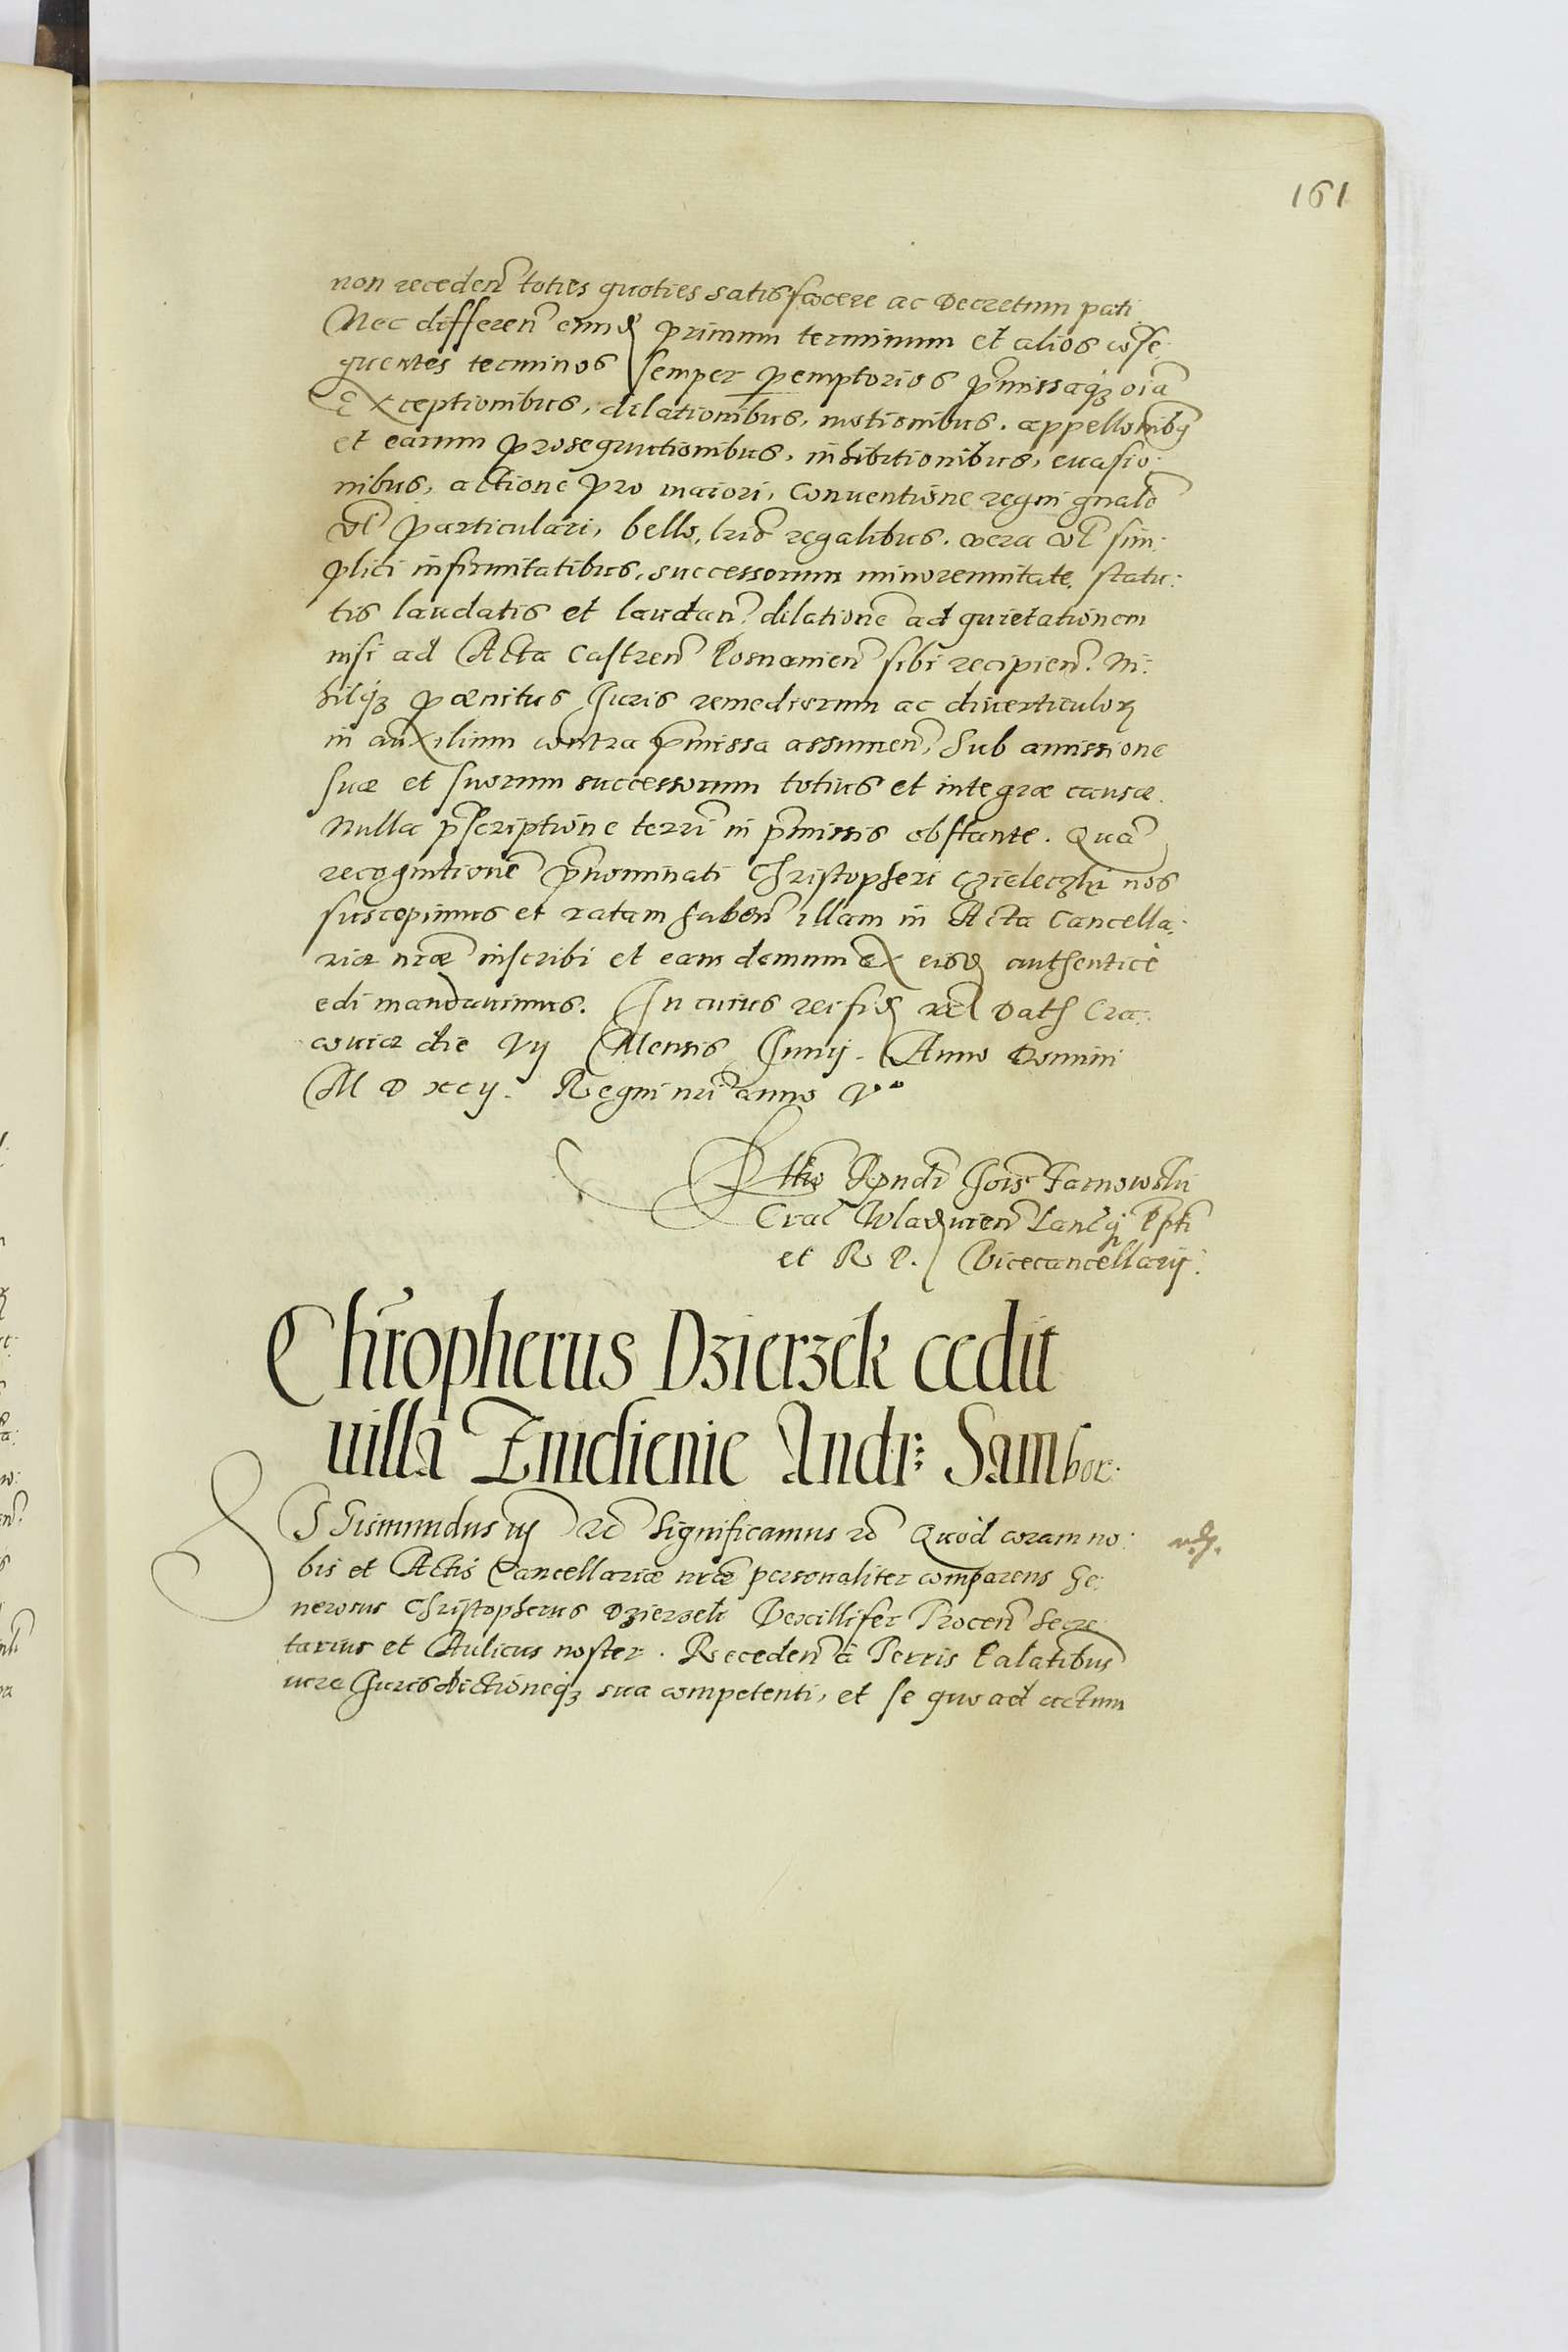 161
non receden̄ toties quoties satisfacere ac Decretum pati
Nec differen̄ eund primum terminum et alios conse:
quentes terminos semper pemptorios p̄missaq₃ oīa
Exceptionibus, dilationibus, motionibus, appellonibꝯ
et earum prosequutionibus, inhibitionibus, euasio:
nibus, actione pro maiori, Conuentione regni gnali
vel particulari, bello, lris regalibus. vera vel sim:
plici infirmitatibus, successorum minorennitate, statu:
tis laudatis et laudan. dilatione ad quietationem
nisi ad Acta Castren̄ Posnanien̄ sibi recipien̄. Ni:
hilq₃ poenitus Juris remediorum ac diverticulorꝝ
in auxilium contra p̄missa assumen̄, Sub amissione
suæ et suorum successorum totius et integræ causæ.
Nulla p̄scriptione terr̄i in p̄missis obstante. Quā
recognitionē p̄nominati Christopheri nos
suscepimus et ratam haben̄ illam in Acta Cancella:
riæ nr̄æ inscribi et eam demum ex eisd authenticè
edi mandauimus. In cuius rei fid Dat Cra:
couiæ die Vij Mensis Junij. Anno Domini
M D XCij. Regni nr̄i anno Vº
Rndi Jois Tarnowski
Crac Wladq̄uien̄ Lanc̄q Ppti
et R P. Vicecancellarij.
Chr̄opherus Dzierzek cedit
uilla Andr: Sambor:
SGismundus iij Significamus Quod coram no:
bis et Actis Cancellariæ nræ personaliter comparens Ge:
nerosus Christopherus Dzierzek Vexillifer Trocen̄ Secre
tarius et Aulicus noster. Receden̄ à Terris Palatibus
uera Jurisdictioneq₃ sua competenti, et se quo ad actum